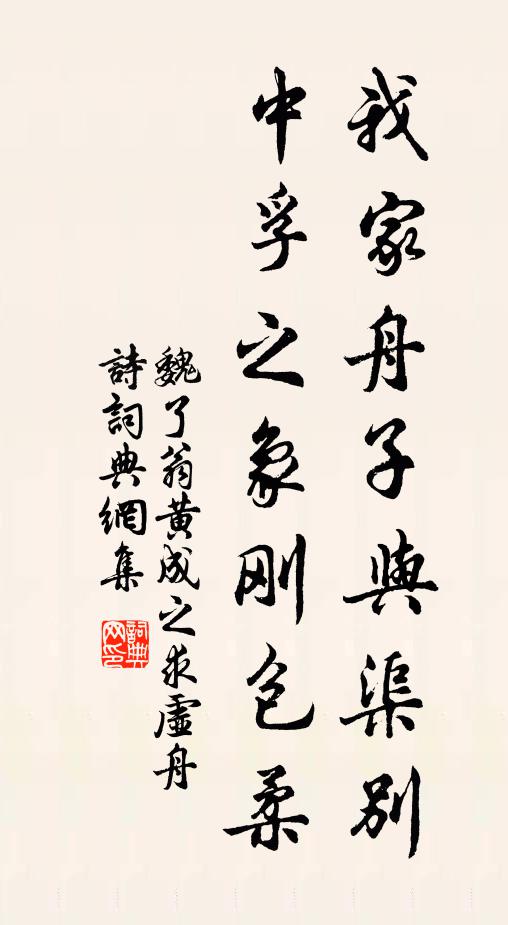 我家舟子與渠別
中孚之象刚包柔
魏了翁黄成之求虛舟
詩詞典網集
詞典网印